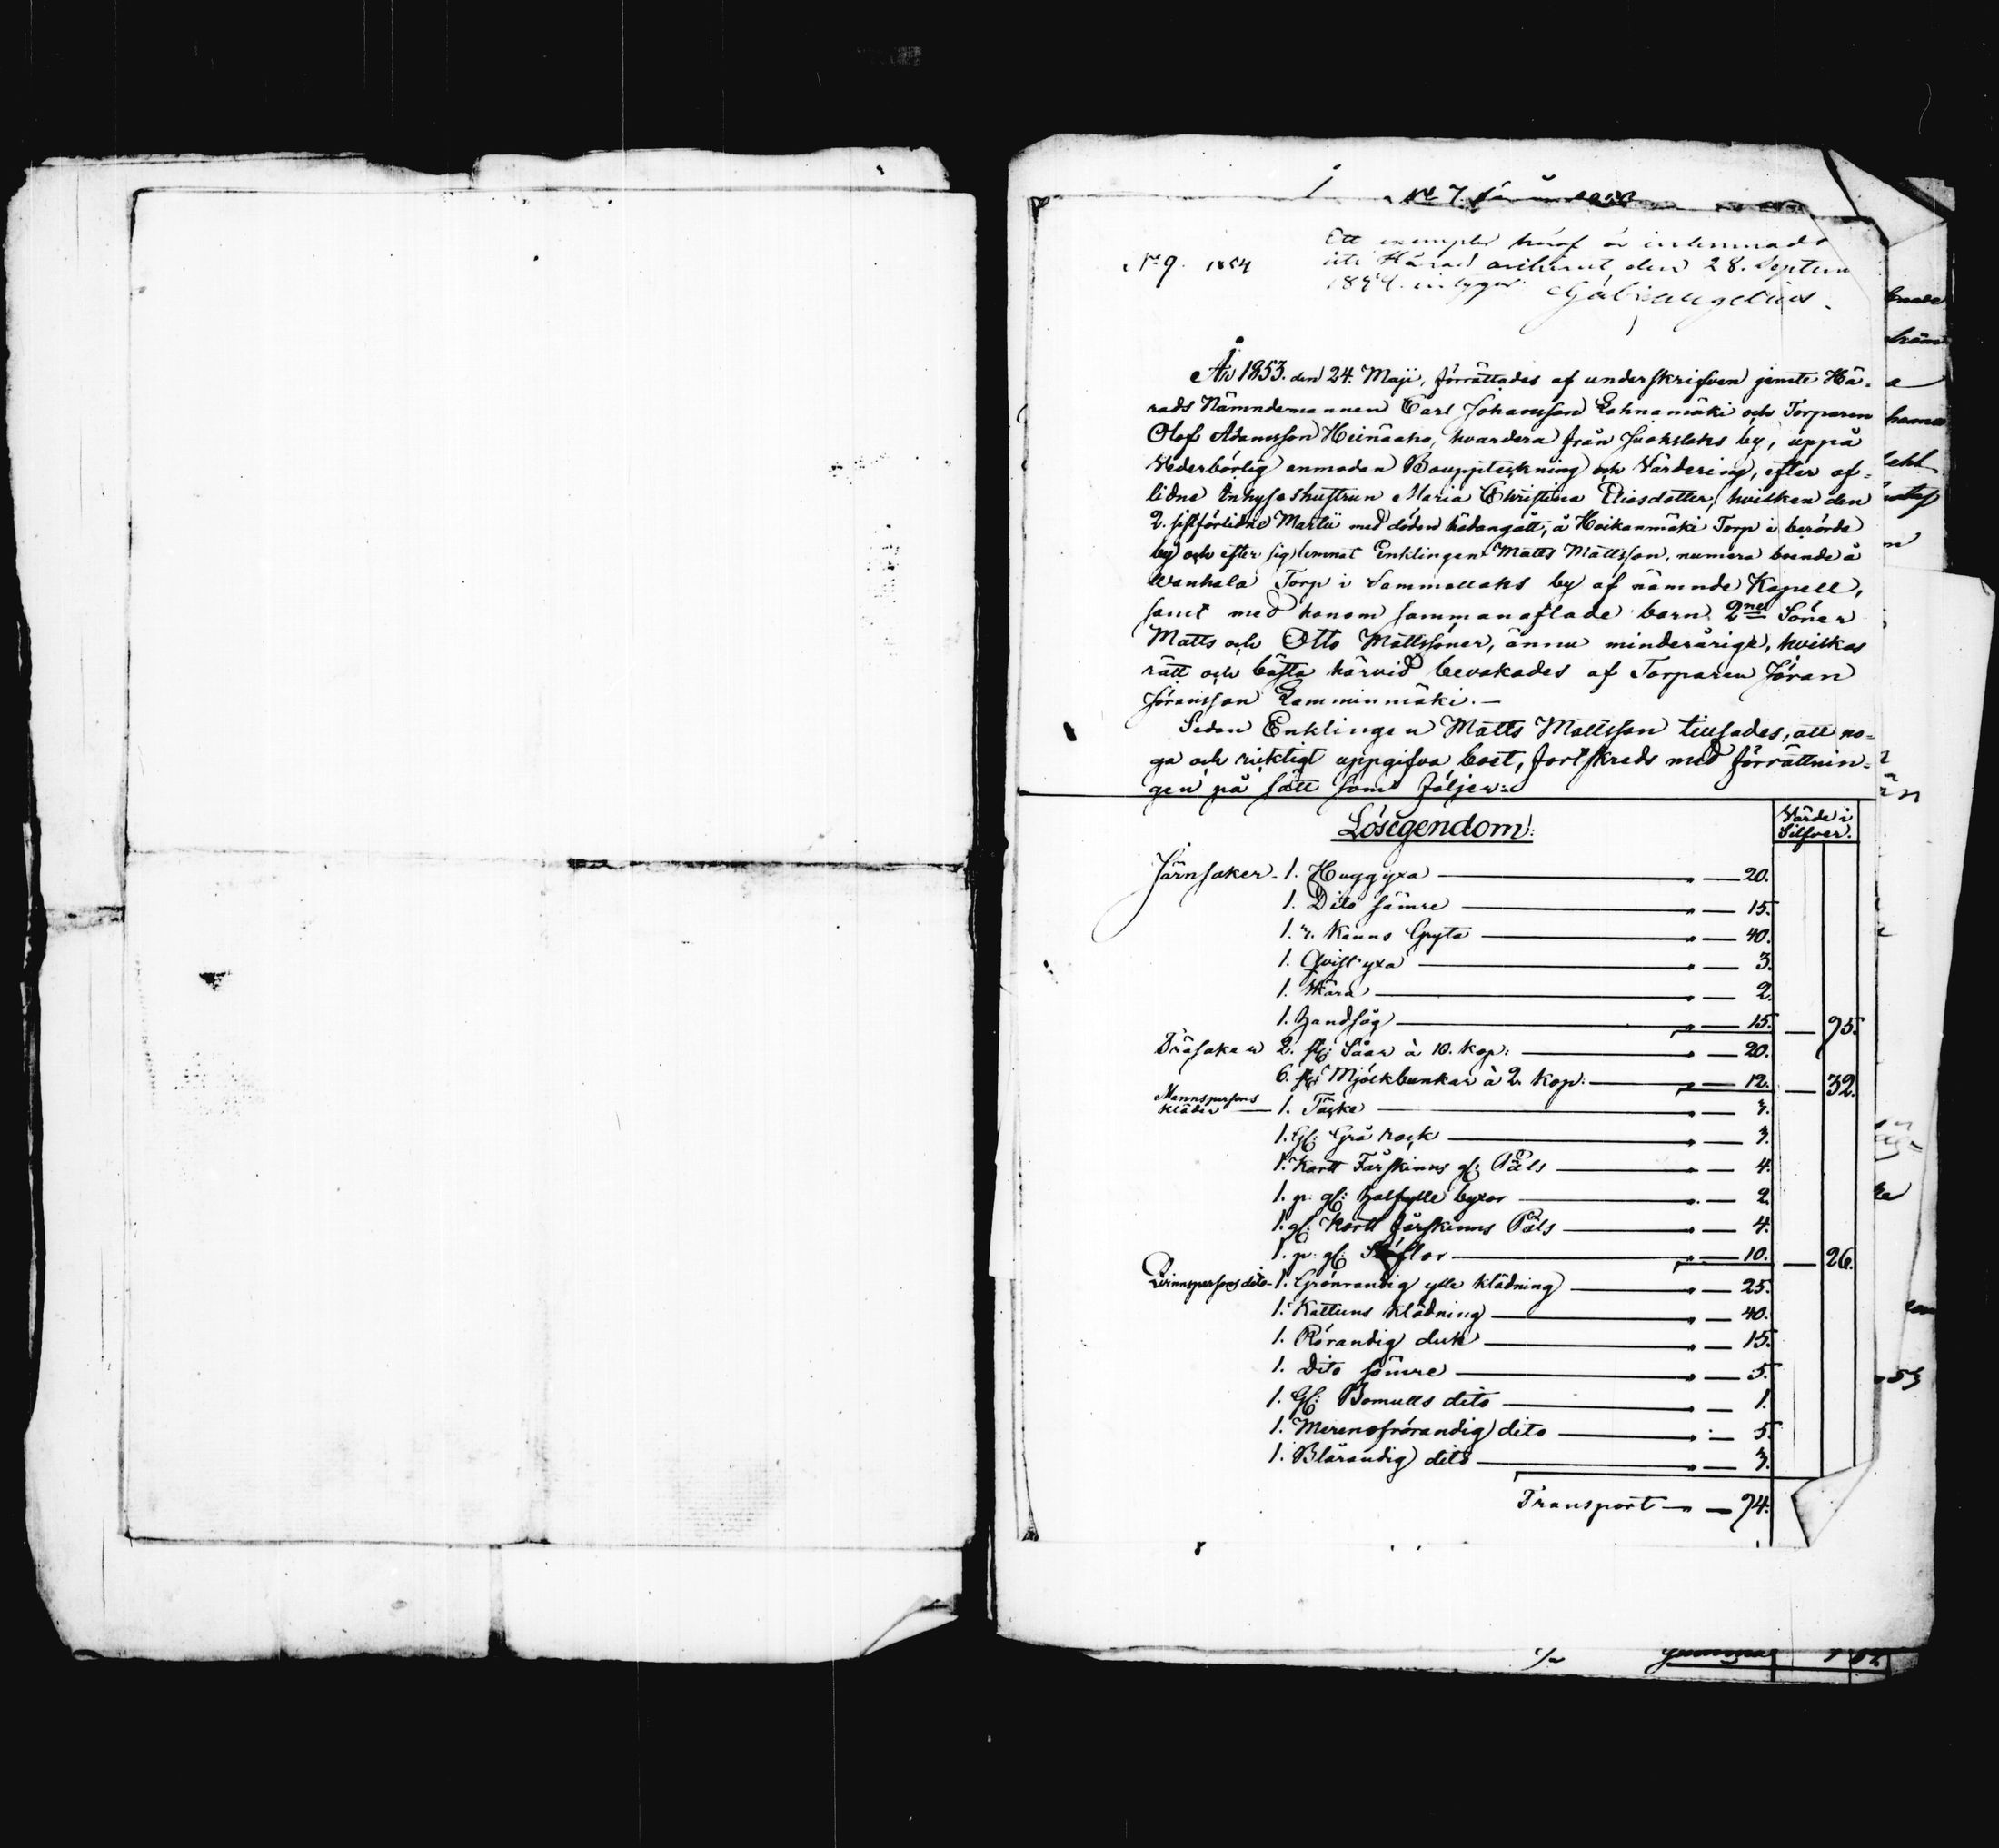 1
No 9. 1854
Ett exemplar häraf är inlemnadt
uti Härads archivet, den 28. Septem
1854. intygar
År 1853. den 24. Maji, förrättades af underskrifven jemte Hä-
rads Nämndemannen Carl Johansson Lahnamäki och Torparen
Olof Adamsson Heinäaho, hvardera från Juokslaks by, uppå
Vederbörlig anmodan Bouppteckning och Värdering, efter af-
lidne Inhyseshustrun Maria Christina Eliasdotter, hvilken den
2. sistförlidne Martii med döden hädangått, å Hoikanmäki Torp i berörde
by och efter sig lemnat Enklingen Matts Mattsson, numera boende å
Wanhala Torp i Sammallaks by af nämnde Kapell,
samt med honom sammanaflade barn 2ne Söner
Matts och Otto Mattssöner, ännu minderårige, hvilkas
rätt och bästa härvid bevakades af Torparen Jöran
Jöransson Lamminmäki.—
Sedan Enklingen Matts Mattsson tillsades, att no-
ga och ricktigt uppgifva boet, fortskreds med förrättnin-
gen på sätt som följer:
Lösegendom:
Värde i
Silfver.
Järnsaker - 1. Huggyxa — 20.
1. Dito sämre — 15.
1. 3. Kanns Gryta — 40.
1. Qvist yxa — 3.
1. Skära — 2.
1. Handsåg — 15. — 95.
Träsaker 2. st: Såar à 10. kop: — 20.
6. st: Mjölkbunkar à 2. Kop: — 12. — 32.
Mannspersons
kläder — 1. Täcke — 3.
1. Gl: Grå rock — 3.
1. Kort Fårskinns gl: Päls — 4.
1. p. gl: halfylle byxor — 2.
1. gl: Kort fårskinns Päls — 4.
1. p. gl: Stöflor — 10. — 26.
Qvinnspersons dito - 1. Grönrandig ylle klädning — 25.
1. Kattuns klädning — 40.
1. Rörandig duk — 15.
1. Dito sämre — 5.
1. Gl: Bomulls dito — 1.
1. Merenosrörandig dito — 5.
1. Blårandig dito — 3.
Transport — 94.
Summa